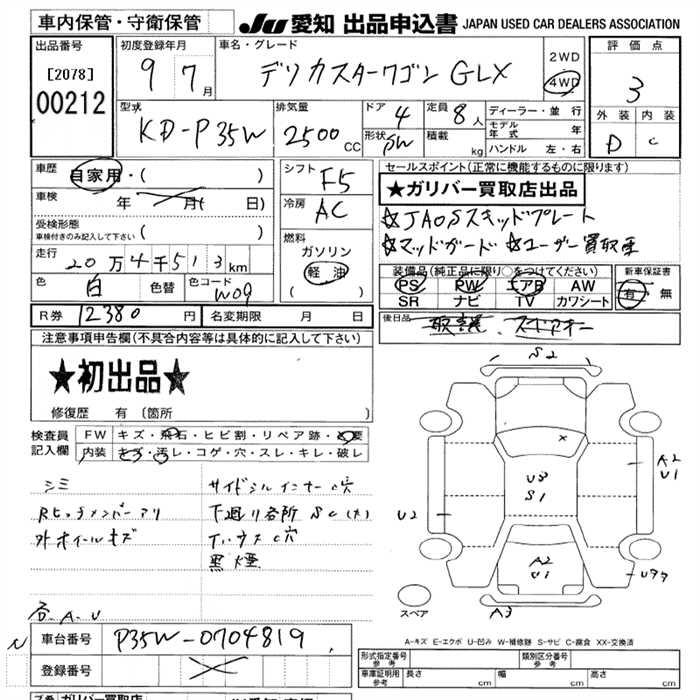 車内保管・守衛保管
JU 愛知 出品申込書 JAPAN USED CAR DEALERS ASSOCIATION
出品番号
[2078]
00212
初度登録年月
9 7月
車名・グレード
デリカスターワゴン GLX
2WD
4WD
評価点
3
外装 内装
D C
型式
KD-P35W
排気量
2500 CC
ドア 4
形状 5W
定員 8人
積載 kg
ディーラー・並行
モデル年式 年
ハンドル 左・右
車歴
自家用・( )
車検
年 月( 日)
受検形態
(車検付きのみ記入して下さい)
走行
20万4千513km
色 白 色替 色コード W09
シフト F5
冷房 AC
燃料
ガソリン
軽油
( )
セールスポイント(正常に機能するものに限ります)
★ガリバー買取店出品
☆JAOSスキッドプレート
☆マッドガード ☆ユーザー買取車
装備品(純正品に限り○をつけてください)
PS PW エアB AW
SR ナビ TV カワシート
新車保証書
有 無
R券 12380円
名変期限 月 日
後日品
取説
注意事項申告欄(不具合内容等は具体的に記入して下さい)
★初出品★
修復歴 有 〔箇所 〕
検査員記入欄
FW キズ・飛石・ヒビ割・リペア跡・必要
内装 キズ・汚レ・コゲ・穴・スレ・キレ・破レ
シミ
Rヒッチメンバーアリ
外ホイールキズ
サイドシルインナー穴
下廻り各所 SC(大)
黒煙
各.A.U
S2
U3
S1
A2
U1
A2
U1
U2
A3
スペア
A-キズ E-エクボ U-凹み W-補修跡 S-サビ C-腐食 XX-交換済
N
車台番号
P35W-0704819
登録番号
型式指定番号
参考
類別区分番号
参考
車庫証明用
参考
長さ cm
幅 cm
高さ cm
ガリバー買取店